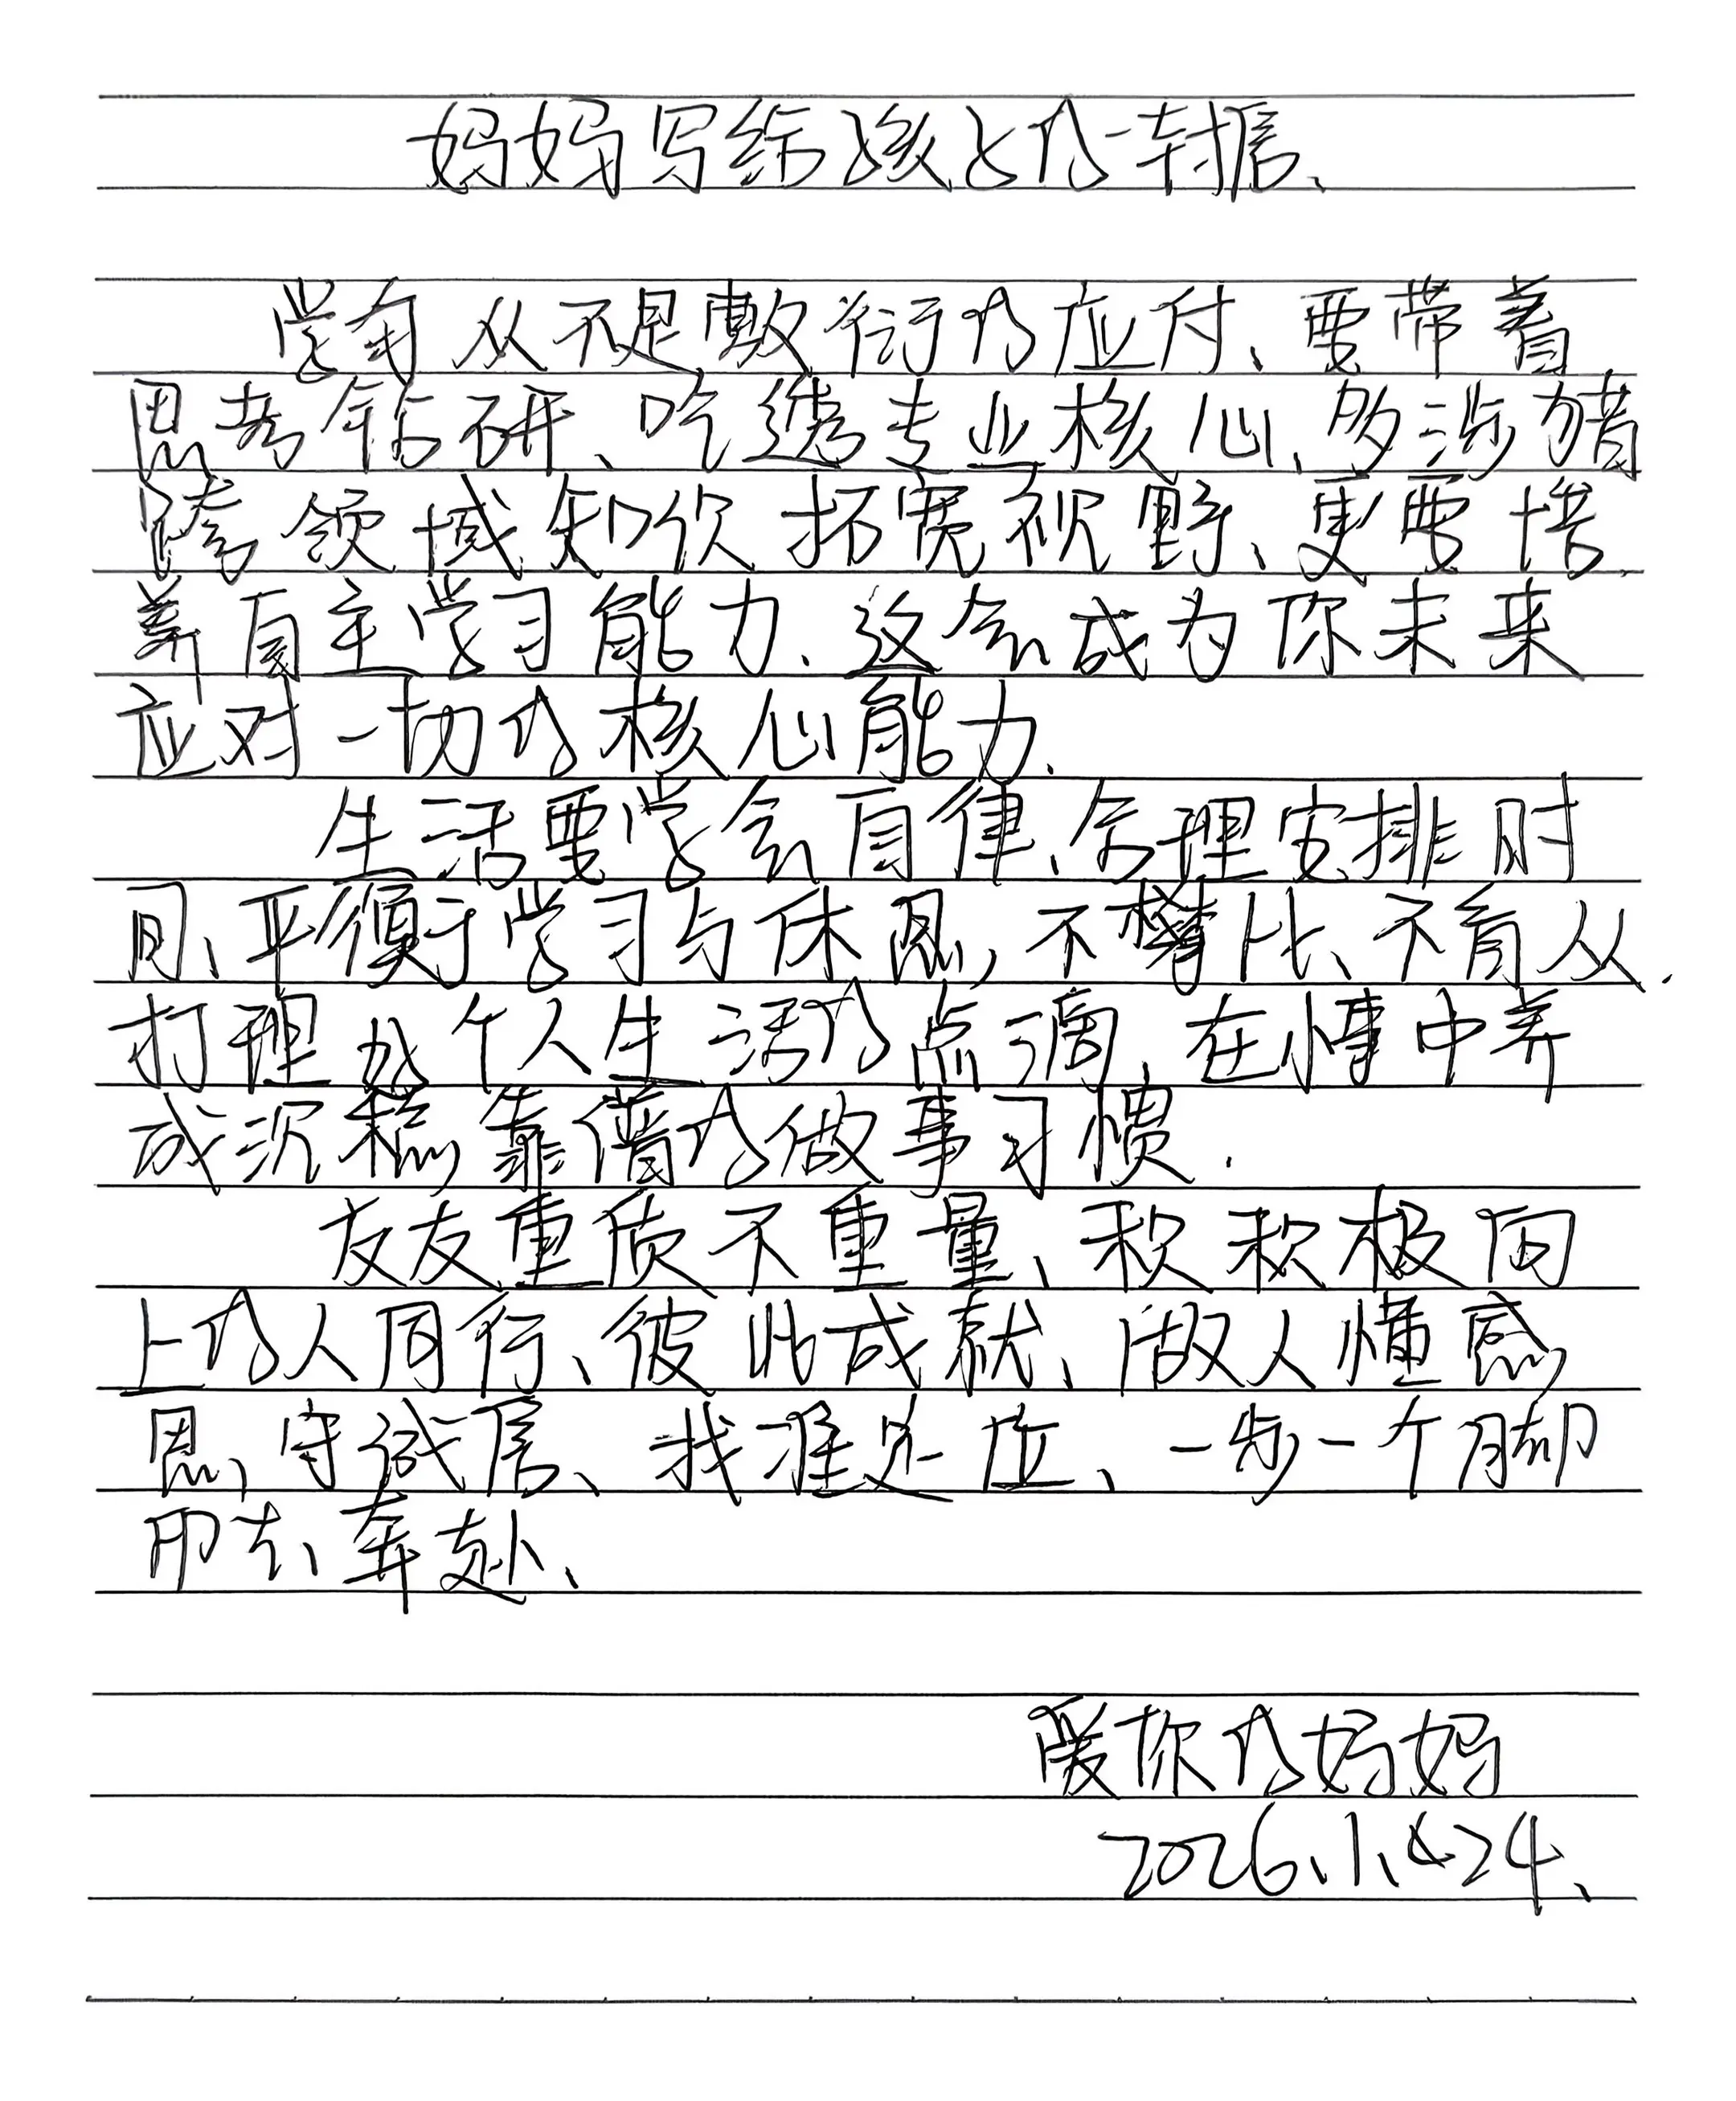 妈妈写给孩子的一封信、
学习从不是敷衍的应付、要带着
思考钻研、吃透专业核心、多涉猎
跨领域知识拓宽视野、更要培
养自主学习能力、这会成为你未来
应对一切的核心能力.
生活要学会自律、合理安排时
间、平衡学习与休息,不攀比、不盲从.
打理好个人生活的点滴,在慎事中养
成沉稳靠谱的做事习惯.
友友重质不重量、积积极向
上的人同行、彼此成就、做人懂感
恩,守诚信、找准定位、一步一个脚
印去、奔赴、
爱你的妈妈
2026、1、24、